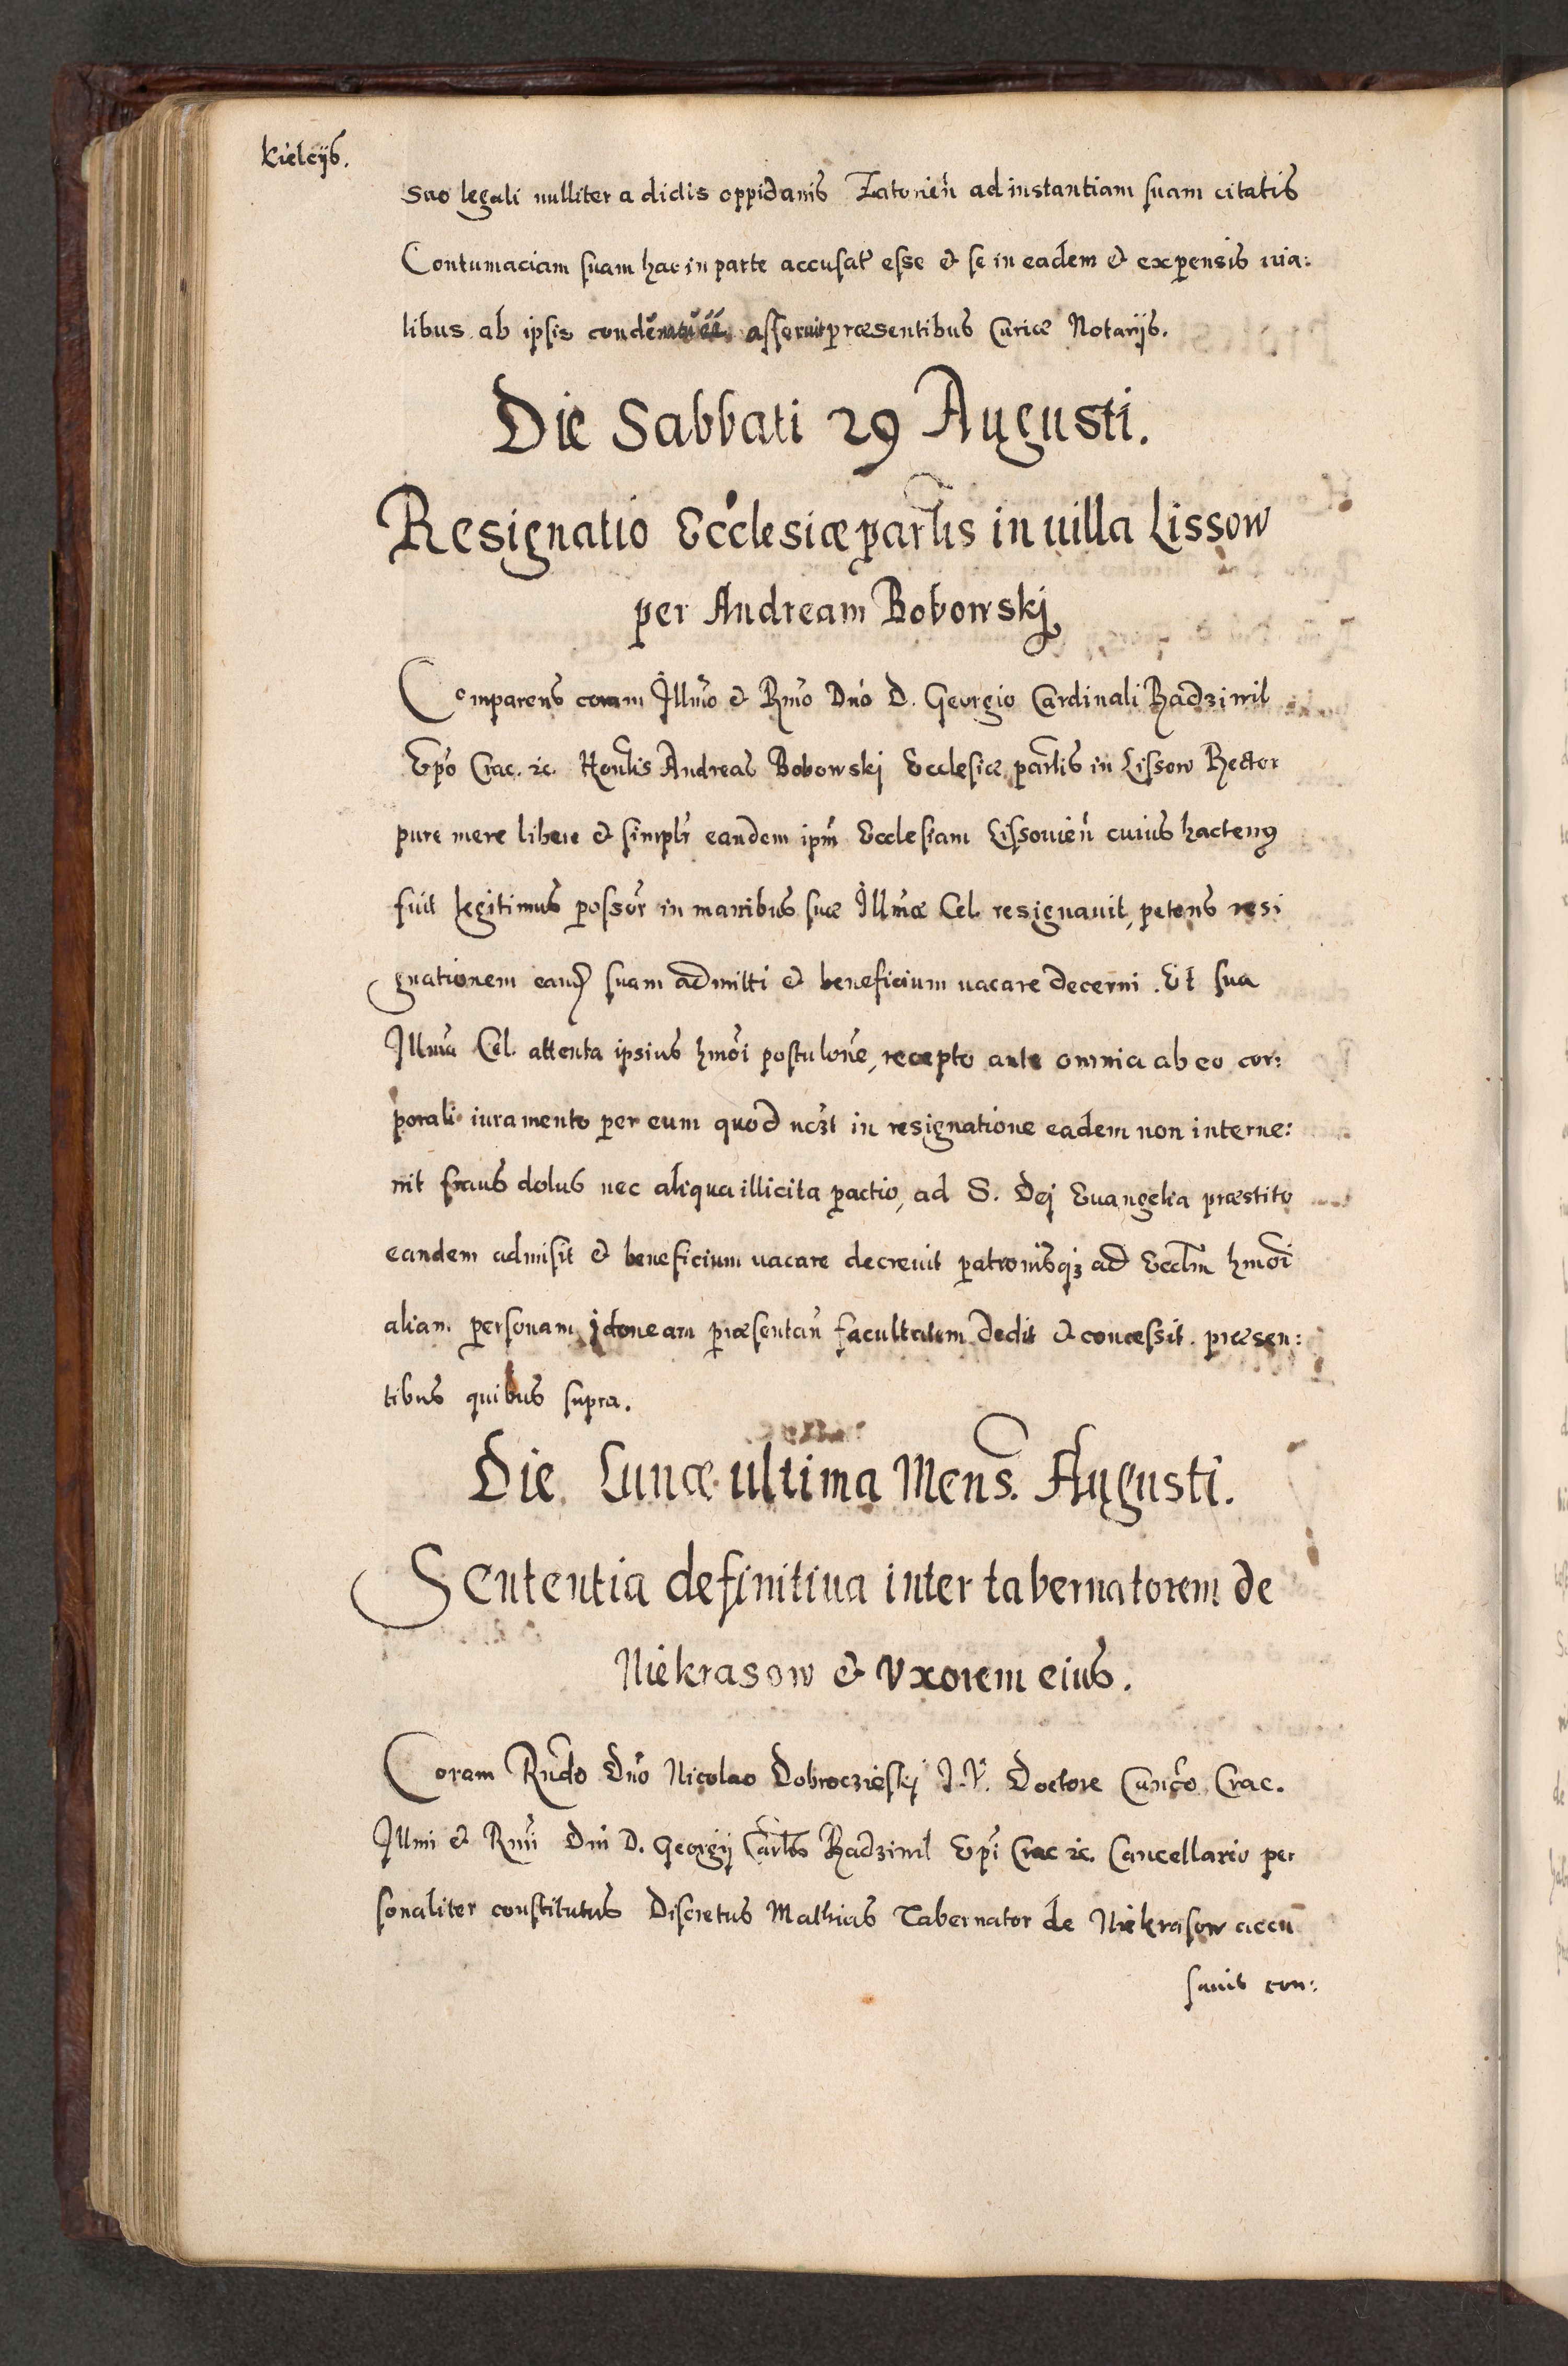 Kielcijs.
suo legali nulliter a dictis oppidanis Zatorień ad instantiam suam citatis
Contumaciam suam hac in parte accusat̃ esse & se in eadem & expensis uia:
libus ab ipsis asseruit præsentibus Curiæ Notarijs.
Die Sabbati 29 Augusti.
Resignatio Ecclesiæ parl̃is in uilla Lissow
per Andream Bobowskj
Comparens coram Illm̃o & Rm̃o Dn̄o D. Georgio Cardinali Radziwil
Ep̃o Crac. ꝛc. Honl̃is Andreas Bobowskj Ecclesiæ parl̃is in Lissow Rector
pure mere libere & simplr̃ eandem ip̃m Ecclesiam Lissouień cuius hactenꝰ
fuit legitimus possor̃ in manibus suæ Illm̃æ Cel. resignauit, petens resi
gnationem eand̃ suam admitti & beneficium uacare decerni. Et sua
Illm̃a Cel. attenta ipsius hmõi postulõne, recepto ante omnia ab eo cor:
porali iuramento per eum quod nc̃zt in resignatione eadem non interue:
nit fraus dolus nec aliqua illicita pactio, ad S. Dej Euangelia præstito
eandem admisit & beneficium uacare decreuit patronisqꝫ ad Eccl̃m hmõi
aliam personam idoneam præsentań facultatem dedit & concessit. præsen:
tibus quibus supra.
Die Lunæ ultima Mens. Augusti.
Sententia definitiua inter tabernatorem de
Niekrasow & Vxorem eius.
Coram Rnd̃o Dn̄o Nicolao Dobrocziéskj J.V. Doctore Canc̃o Crac.
Illm̃i & Rm̃i Dn̄i D. Georgij Carl̃is Radziwil Ep̃i Crac ꝛc. Cancellario per
sonaliter constitutus Discretus Mathias Tabernator de Niekrasow accu
sauit con: